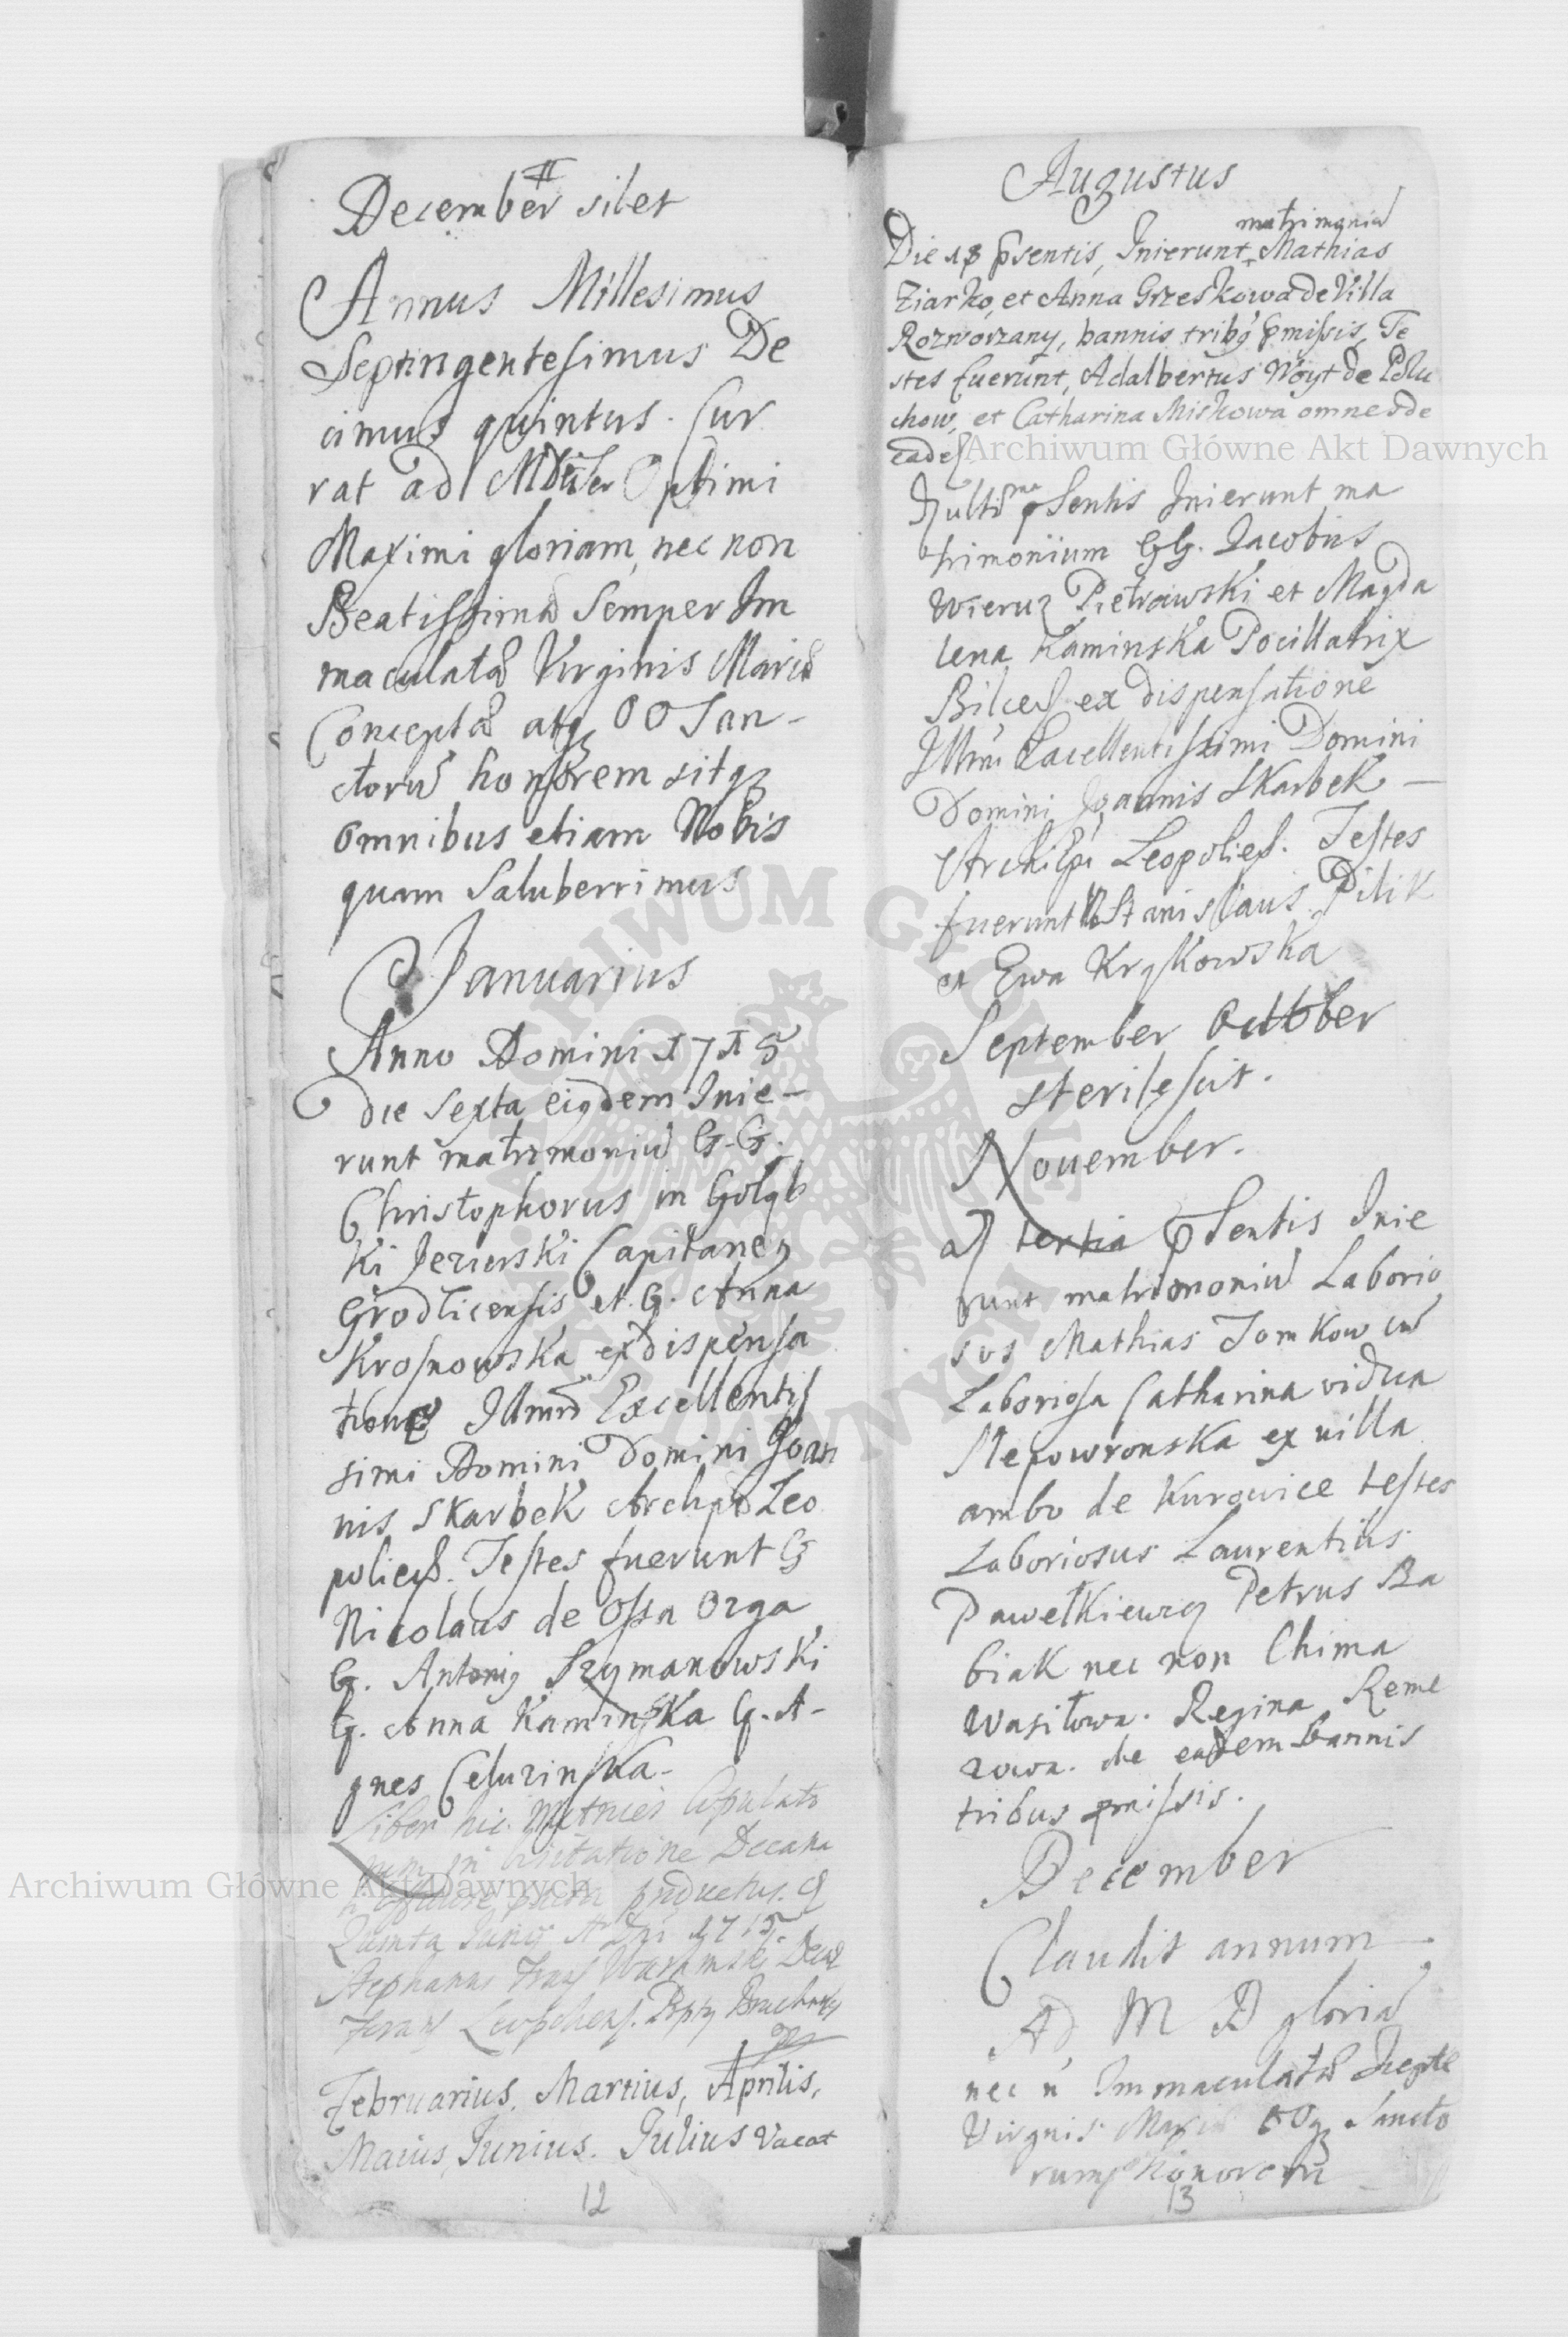 December silet
Annus Millesimus
Septingentesimus De
cimus quintus. Cur
rat ad Optimi
Maximi gloriam, nec non
Beatissimæ Semper Im
maculatæ Virginis Mariæ
Conceptæ atq3 OO San-
ctorũ honorem sitq3
omnibus etiam Nobis
quam Saluberrimus
Januarius
Anno Domini 1715
die Sexta eiqdem Inie-
runt matrimoniũ G. G.
Christophorus in Gołąb
Ki Jezierski Capitaneq
Grodlicensis et. G. Anna
Krosnowska ex dispensa
tione Illmi Excellentis
simi Domini Domini Joan
nis Skarbek Archypi Leo
polieñ. Testes fuerunt G
Nicolaus de Ossa Ozga
G. Antoniq Szymanowski
G. Anna Kaminska G. A-
gnes Celuzinska-
Liber hic Metrices Copulato
rum in visitatione Decana
productus. q
Quinta Junij Aº Dni 1715
Stephanus Decañ
Februarius. Martius, Aprilis,
Maius, Junius. Julius Vacat
12
Augustus
matrimoniũ
Die 18 pñsentis, Inierunt Mathias
Ziarko, et Anna Grzeskowa de Villa
Rozworzany, bannis tribq pmissis, Te
stes fuerunt, Adalbertus Woyt de Polu
chow, et Catharina Miskowa omnes de
eadeȝ
ultima pSentis Inierunt ma
trimonium GG. Jacobus
Wieruz Pietrowski et Magda
lena Kaminska Pocillatrix
Bilceñ ex dispensatione
Illmi Excellentissimi Domini
Domini Joannis Skarbek -
Archiepi Leopolieñ. Testes
fuerunt Stanislaus Pilik
et Ewa Krykowska
September October
sterilescit.
November.
tertia pSentis Inie
runt matrimoniũ Laborio
sus Mathias Tomkow cũ
Laboriosa Catharina vidua
Slepowronska ex villa
ambo de Kurowice testes
Laboriosus Laurentius
Pawełkiewicz Petrus Ba
biak nec non Chima
Wasiłowa. Regina Reme
zowa. de eadem bannis
tribus pmissis.
December
Claudit annum.
Ad M D gloriã
nec ñ Immaculatæ Cceptæ
Virgnis Mariæ OOq3 Sancto
rum honorem
13
Archiwum Główne Akt Dawnych
Archiwum Główne Akt Dawnych
ARCHIWUM GŁÓWNE AKT DAWNYCH